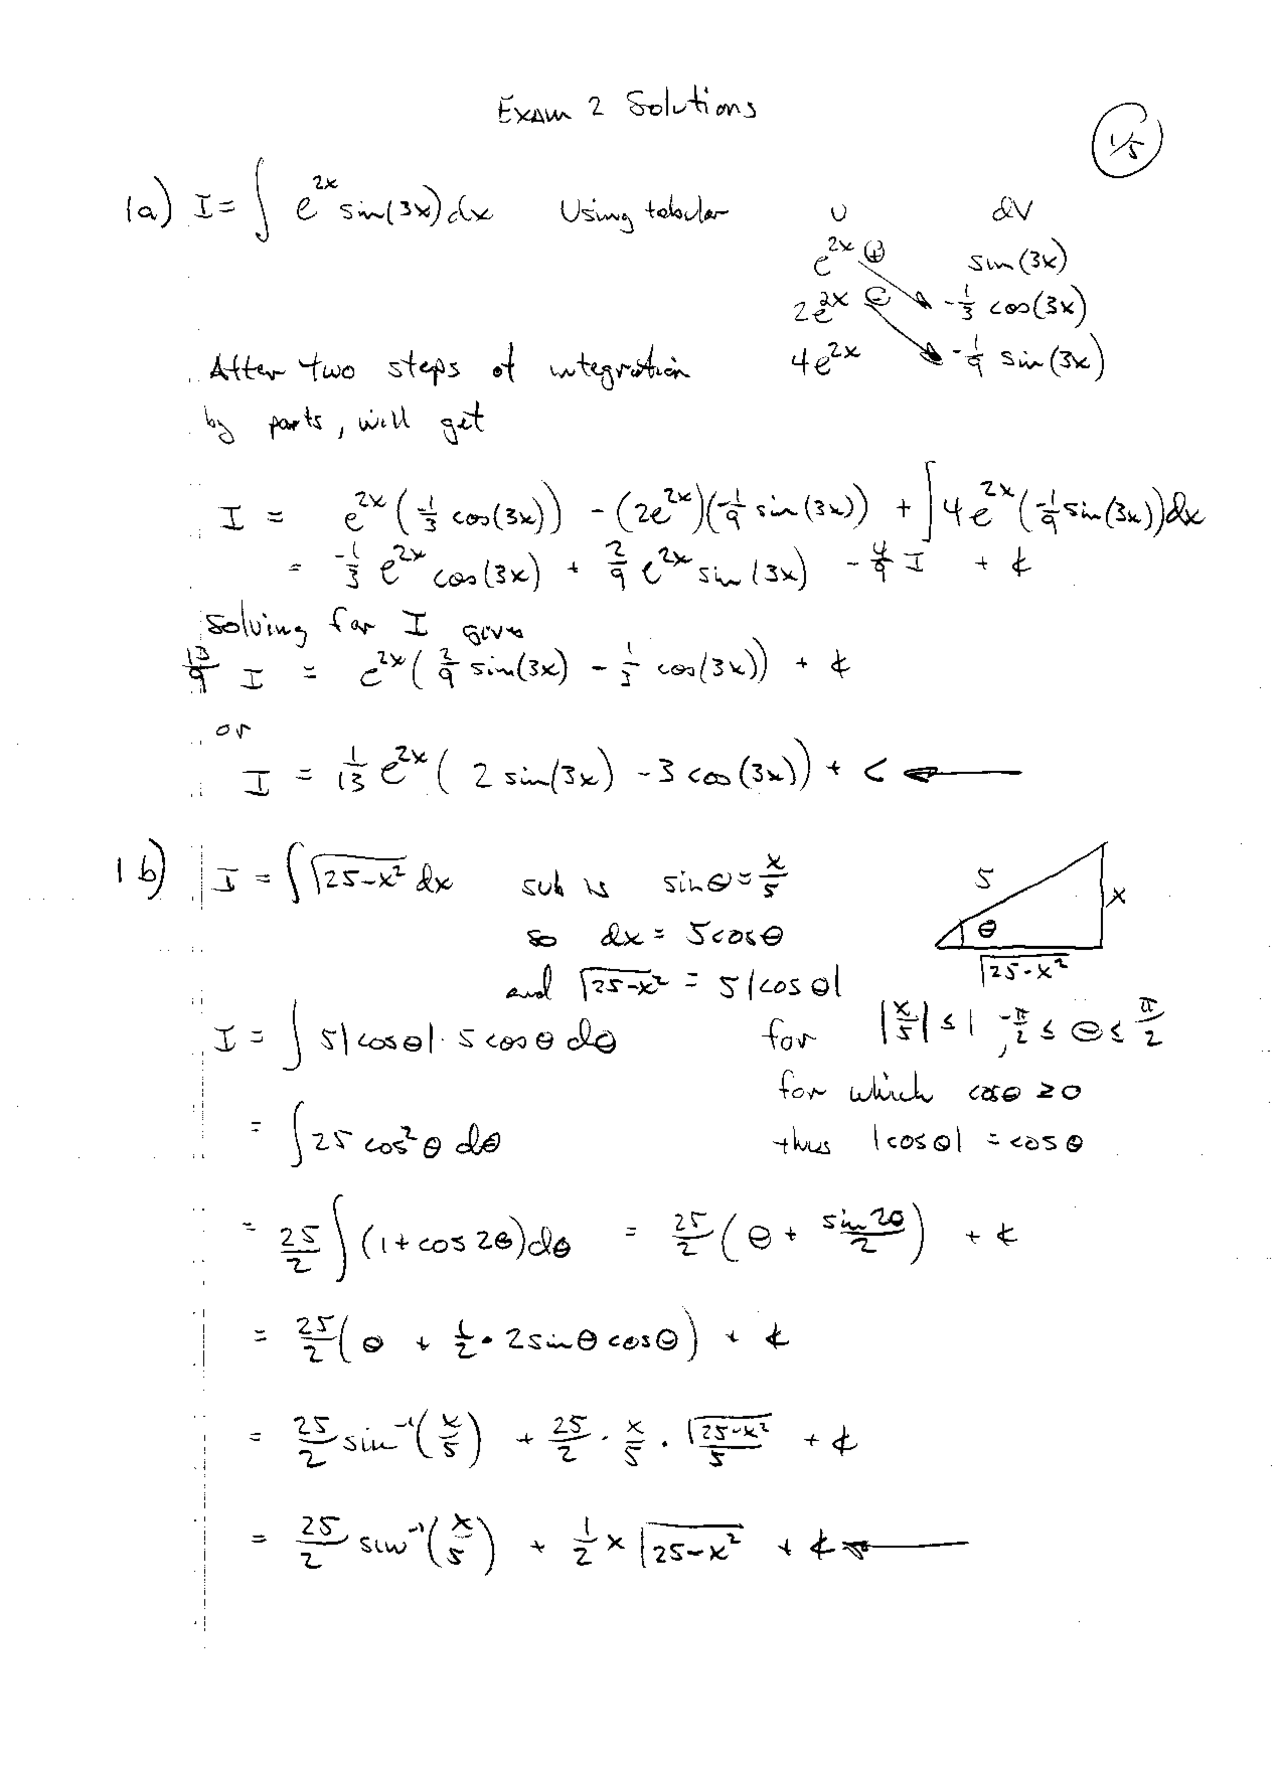 Exam 2 Solutions
1/5
1a) I = ∫ e^{2x} sin(3x) dx Using tabular U dV
e^{2x} ⊕ sin(3x)
2e^{2x} ⊖ -1/3 cos(3x)
4e^{2x} -1/9 sin(3x)
After two steps of integration
by parts, will get
I = e^{2x}(-1/3 cos(3x)) - (2e^{2x})(-1/9 sin(3x)) + ∫ 4e^{2x}(-1/9 sin(3x)) dx
= -1/3 e^{2x} cos(3x) + 2/9 e^{2x} sin(3x) - 4/9 I + k
Solving for I gives
13/9 I = e^{2x}(2/9 sin(3x) - 1/3 cos(3x)) + k
or
I = 1/13 e^{2x}(2 sin(3x) - 3 cos(3x)) + C
1b) I = ∫ √(25-x²) dx sub is sinθ = x/5
so dx = 5cosθ
and √(25-x²) = 5|cosθ|
5
x
θ
√(25-x²)
I = ∫ 5|cosθ| · 5cosθ dθ for |x/5| ≤ 1, -π/2 ≤ θ ≤ π/2
for which cosθ ≥ 0
= ∫ 25 cos²θ dθ thus |cosθ| = cosθ
= 25/2 ∫ (1+cos2θ)dθ = 25/2 (θ + sin2θ/2) + k
= 25/2 (θ + 1/2 · 2sinθcosθ) + k
= 25/2 sin⁻¹(x/5) + 25/2 · x/5 · √(25-x²)/5 + k
= 25/2 sin⁻¹(x/5) + 1/2 x √(25-x²) + k